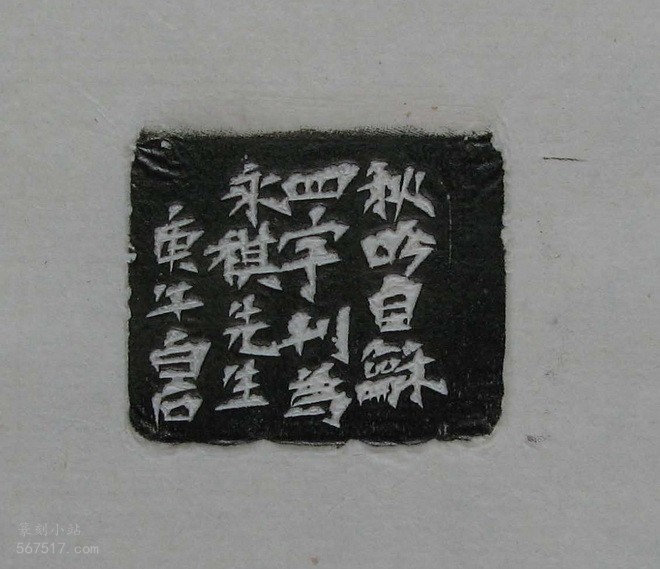 秋吟自龢
四字刊為
永祺先生
庚午白石
篆刻小站
567517.com